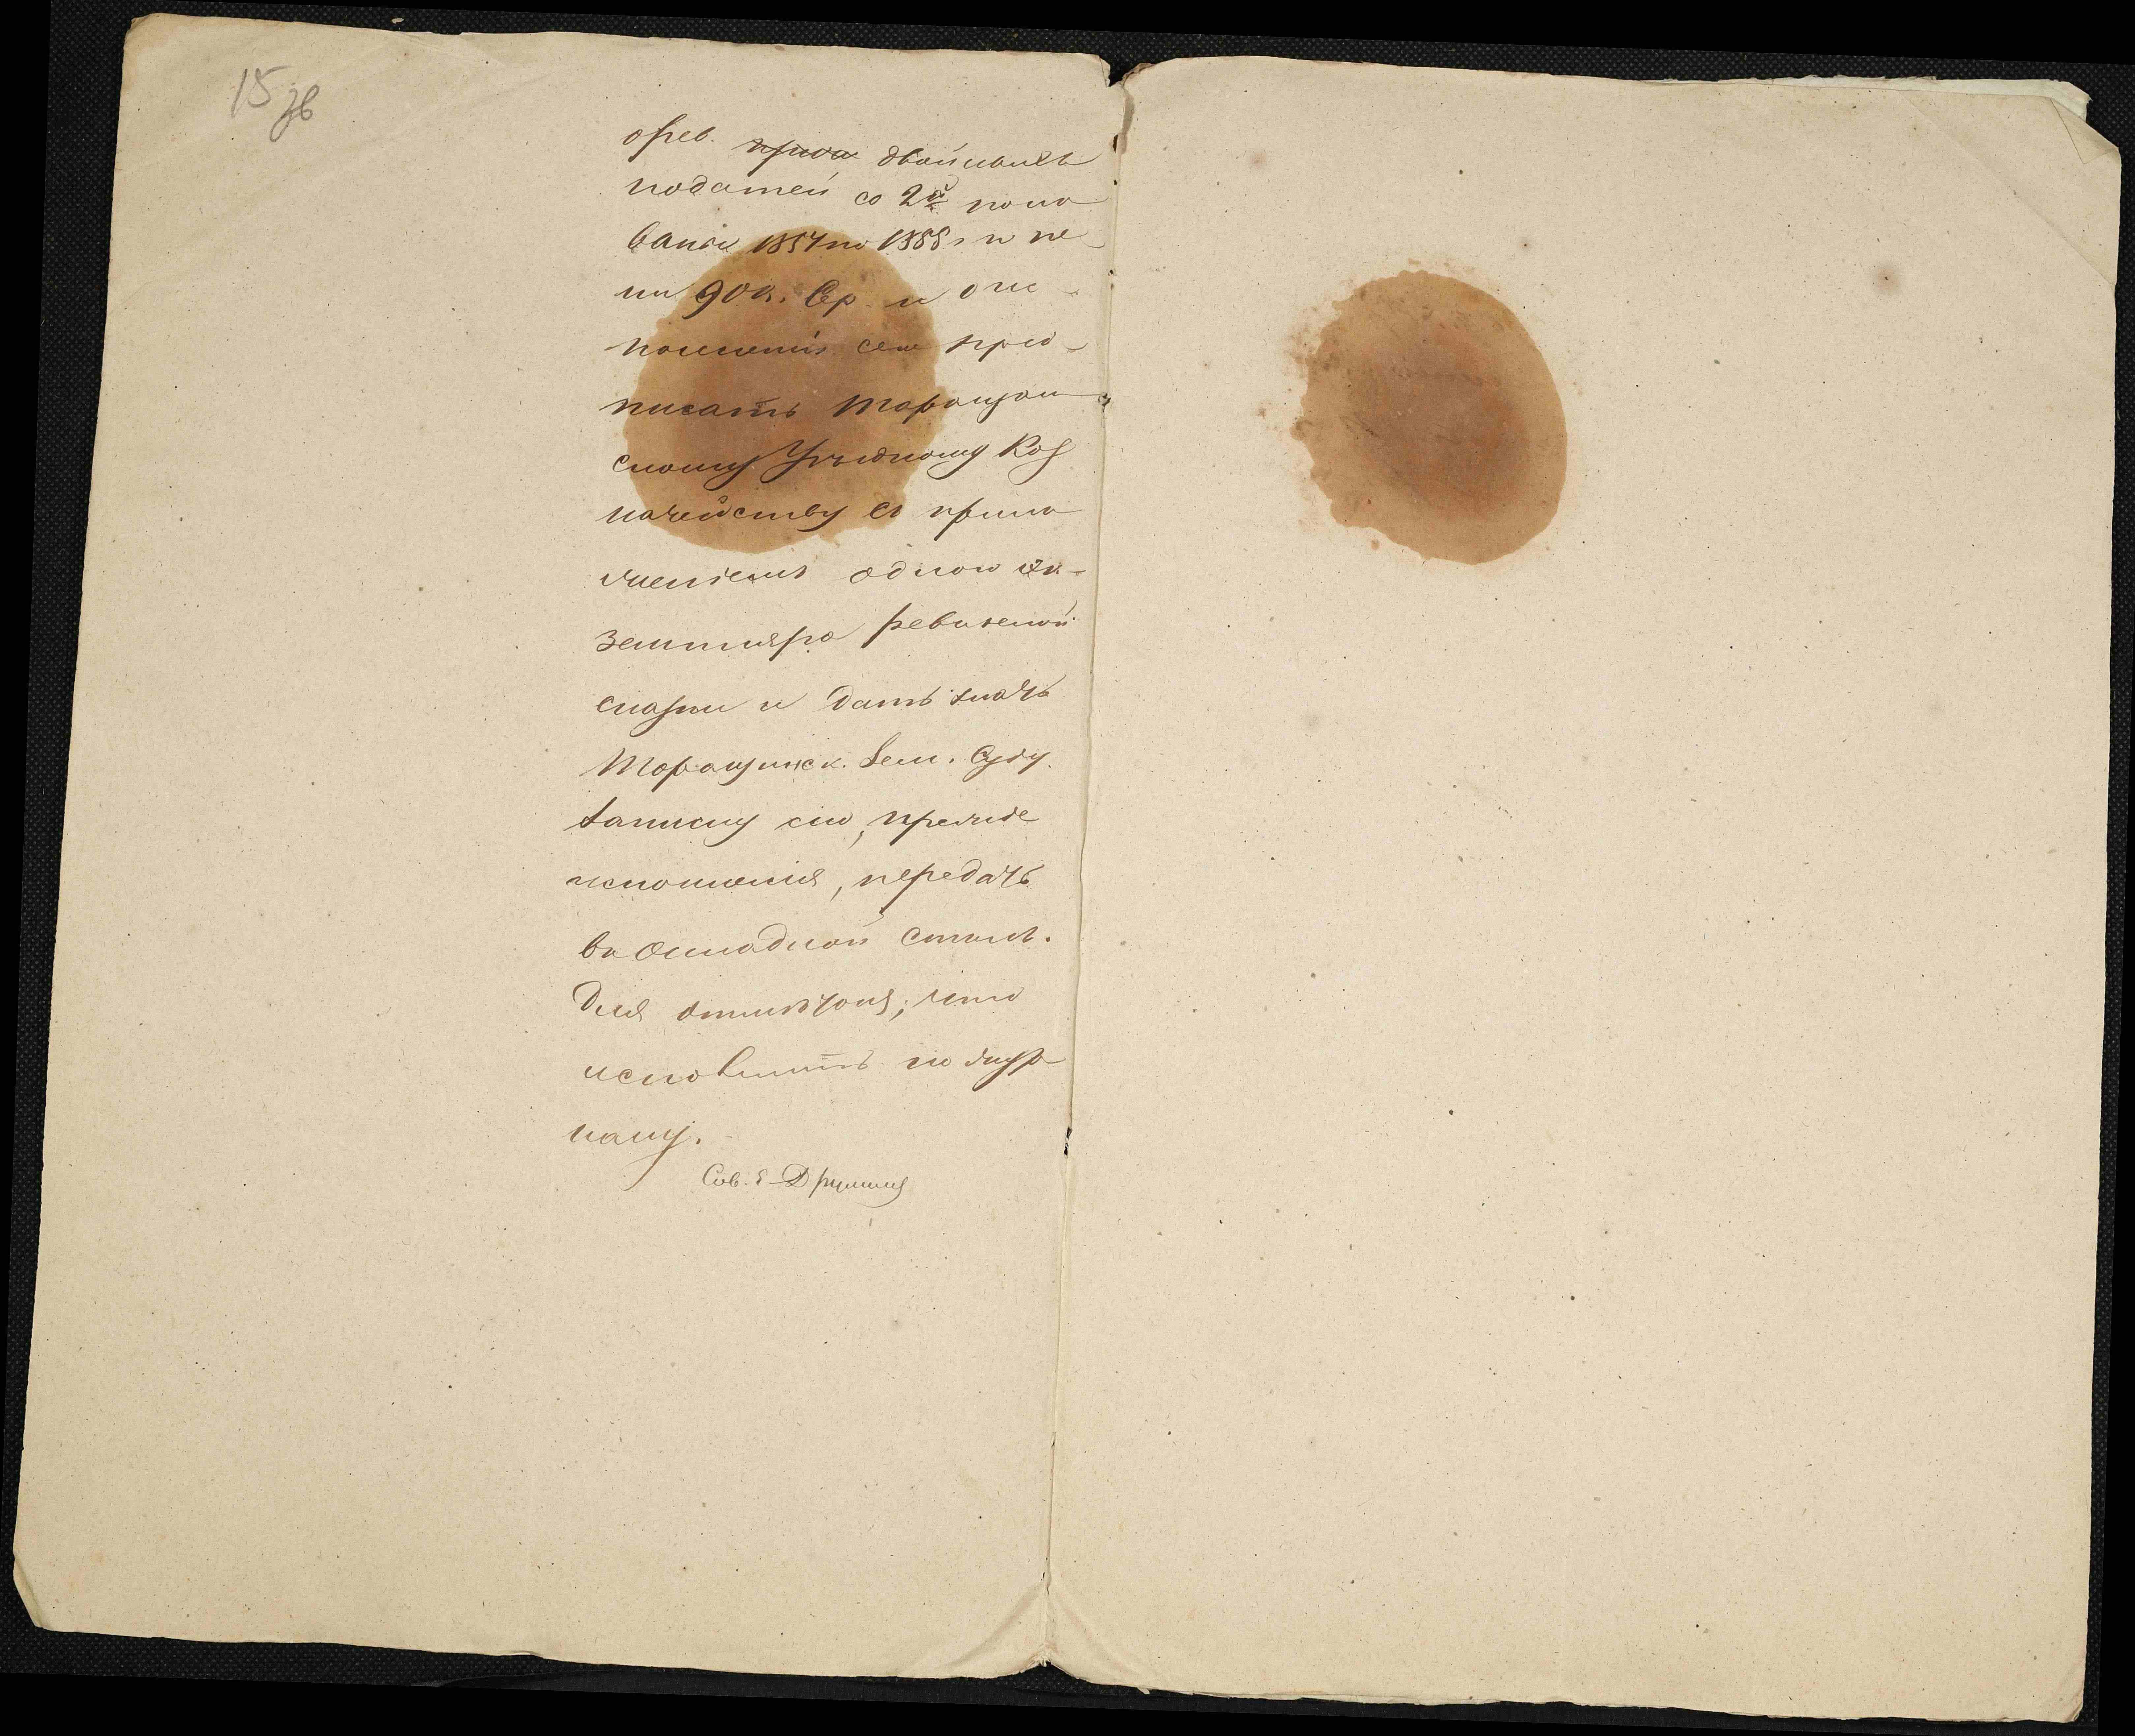 15 зв
двойныхъ
податей со 2й поло
вины 1857 по 1858 г и пе
ни 90 к. Сер. и о ис
полненіи сего пред
писать Таращан
скому Уѣздному Каз
начейству съ прило
женіемъ одного эк-
земпляра ревизской
сказки и дать знать
Таращанск. Зем. Суду.
Записку сію, прежде
исполненія, передать
въ Окладной столъ.
для отмѣтокъ; что
исполнить по жур
налу.
Сов.